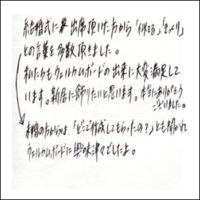 結婚式に出席頂いた方から「似てる」「そっくり」
との言葉も多数頂きました。
私たちもウェルカムボードの出来に大変満足して
います。新居に飾りたいと思います。本当にありがとう
ございました。
未婚の方からは「どこで作成してもらったの?」とも聞かれ
ウェルカムボードに興味津々でしたよ。